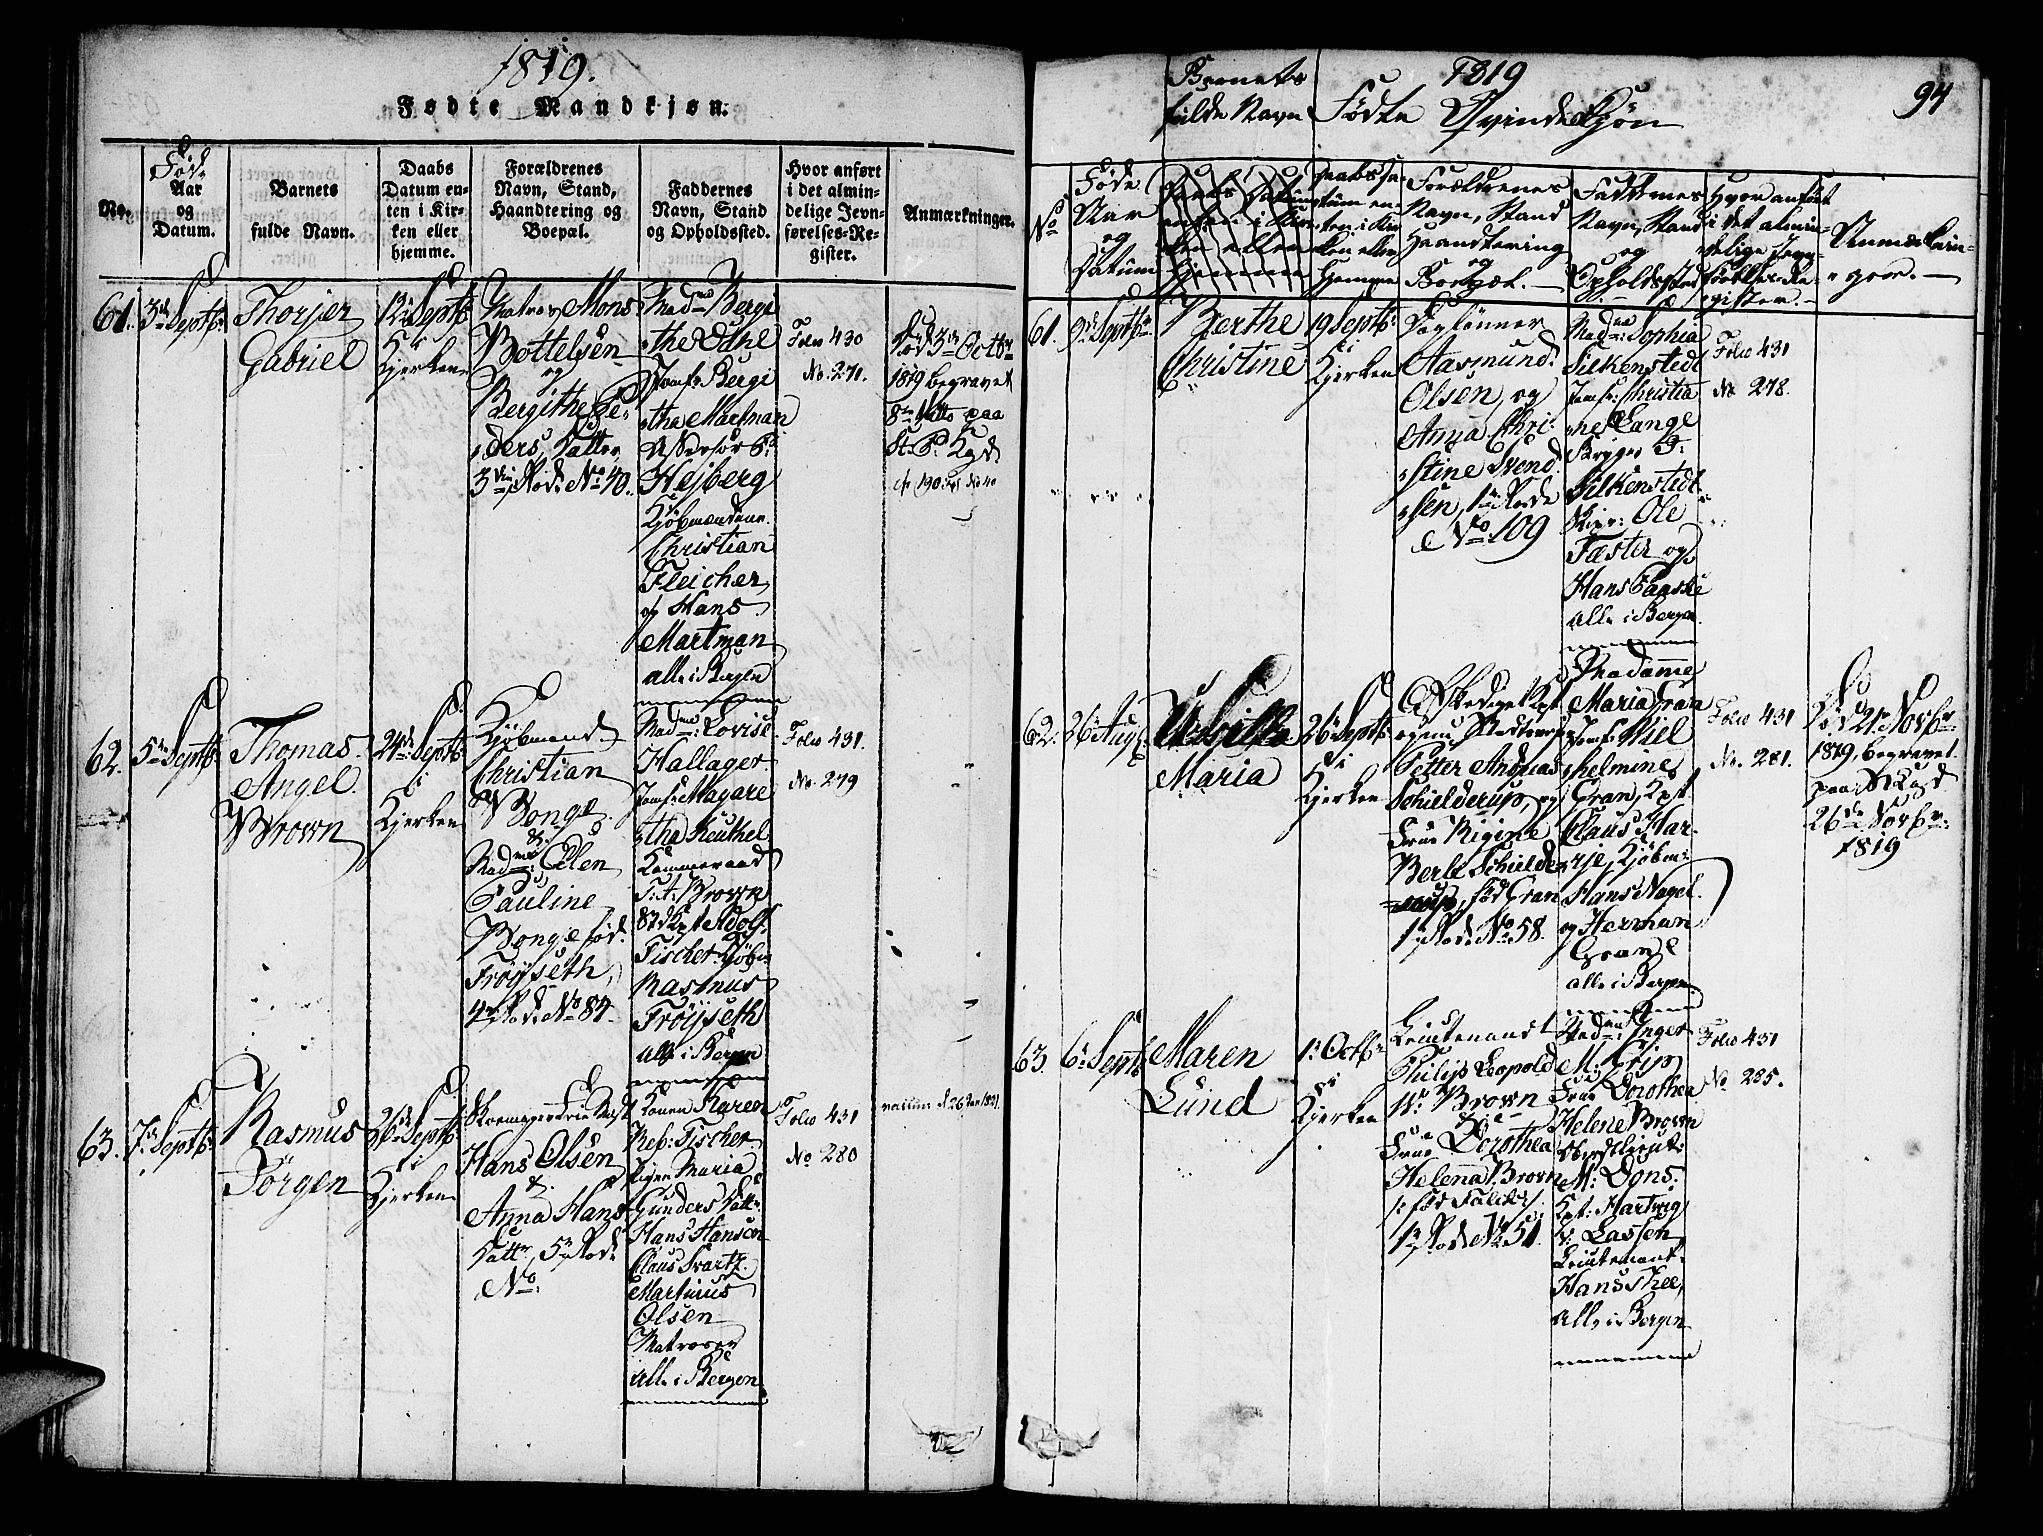 1819.
Fødte Mandkjøn.
No.
Føde
Aar
og
Datum.
Barnets
fulde Navn.
Daabs
Datum en-
ten i Kir-
ken eller
hjemme.
Forældrenes
Navn, Stand,
Haandtering og
Boepæl.
Faddernes
Navn, Stand
og Opholdssted.
Hvor anført
i det almin-
delige Jevn-
førelses-Re-
gister.
Anmærkninger.
61.
3de Septbr
Thorjer
Gabriel
12te Septbr
i
Kjerken
Matros Mons
Bottelsen
og
Bergithe Pe-
ders Datter
3die Rode No 40.
Madme Bergi
the Udhe
Jomfr Bergi
tha Martman
Hejberg
Kjøbmændene
Christian
Fleicher
og Hans
Martman
alle i Bergen
Folio 430
No. 271.
Død 3de Octbr
1819 begravet
8de ditto paa
St. P. Kgd.
62.
5te Septbr
Thomas
Angel
Brown
24de Septbr
i
Kjerken
Kjøbmand
Christian
Bonge
&
Madme Elen
Pauline
Bonge fød
Frøyseth,
4de Rode No 84.
Madme Lovise
Hallager
Jomfr Magare
tha Reuthel
Kammeraad
T: A: Brown
Kpt Adolf
Fischer Kjøbm
Rasmus
Frøyseth
alle i Bergen
Folio 431.
No. 279
63.
7de Septbr
Rasmus
Jørgen
26de Septbr
i
Kjerken
Hans Olsen
&
Anna Hans
Datter, 5te Rode
No.
Konen Karen
Reb: Fischer
Pigen Maria
Gunders Datter
Hans Hanson
Claus Svartz
Martinus
Olsen
Matroser
alle i Bergen
Folio 431
No 280
vaccin: d. 26 Jan 1821.
94
1819
Barnets
fulde Navn
Fødte Qvindekjøn
No
Føde
Aar
og
Datum
Daabs Datum
enten i Kir-
ken eller
hjemme
Daabs Da-
tum en-
ten i Kir-
ken eller
hjemme
Forældrenes
Navn, Stand
Haandtering
og
Boepæl.
Faddernes
Navn, Stand
og
Opholdssted
Hvor anført
i det almin-
delige Jevn-
førelses Re-
gister.
Anmærknin-
ger.
61.
9de Septbr
Berthe
Christine
19 Septbr
i
Kjerken
Daglønner
Aasmund
Olsen, og
Anna Chri-
stine Svend-
sen, 1te Rode
No 109
Madme Sophia
Silkenstedt
Jomfr: Christia
ne Lange
Skryger J:
Silkenstedt
Ole
Fæster og
Hans Faaske
alle i Bergen
Folio 431
No 278.
62.
26 Aug
Maria
26de Septbr
i
Kjerken
Petter Andreas
Schielderup, og
Frue Rigine
Berle Schielde-
rup, fød Gran
1te Rode No 58.
Madame
Maria Gran
Jomfr Wiel
helmine
Gran, Kpt
Claus Har-
rje, Kjøbm:
Hans Nagel
og Herman
Gran
alle i Bergen
Folio 431
No. 281.
Død 21de Novbr
1819, begravet
paa St. P. Kgd
26de Novbr
1819
63.
6te Septbr
Maren
Lund
1: Octbr
i
Kjerken
Lieutenant
Philip Leopold
W: Brown
&
Frue Dorothea
Helena Brown
fød Falck
1te Rode No 51.
Madme Inger
M: Grip
Frue Dorothea
Helene Brown
Oberstlieut:
M: Dons
Kpt: Hartwig
v: Lassen
Lieutenant
Hans Thee,
alle i Bergen
Folio 431
No. 285.